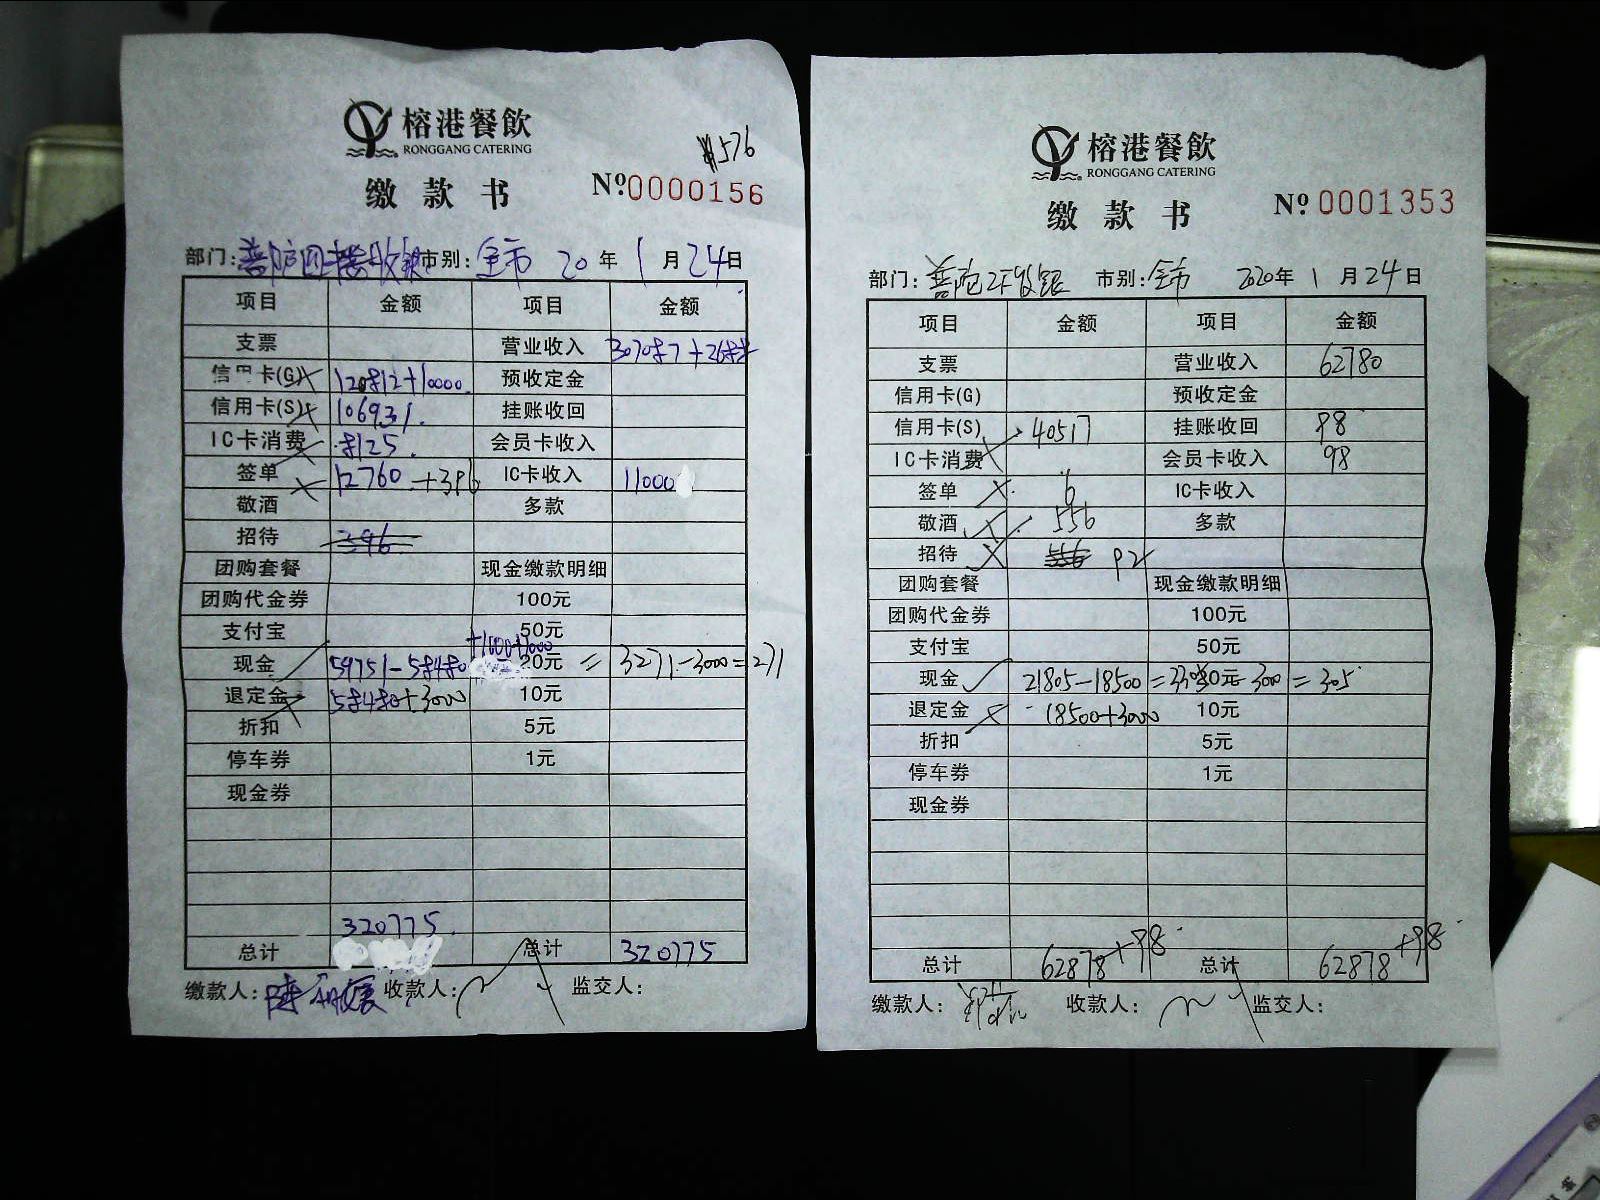 榕港餐飲
RONGGANG CATERING
¥576
缴款书
Nº0000156
部门: 市别: 全市 20 年 1 月 24 日
项目 金额 项目 金额
支票 营业收入
信用卡(G) 预收定金
信用卡(S) 106931. 挂账收回
IC卡消费 8125. 会员卡收入
签单 12760 +396 IC卡收入 11000
敬酒 多款
招待 396
团购套餐 现金缴款明细
团购代金券 100元
支付宝 50元
现金 59751-58480 +1000+1000 20元 = 3271-3000=271
退定金 58480+3000 10元
折扣 5元
停车券 1元
现金券
320775.
总计 总计 320775
缴款人: 收款人: 监交人:
榕港餐飲
RONGGANG CATERING
缴款书
Nº 0001353
部门: 普陀2F收银 市别: 全市 2020年 1 月 24 日
项目 金额 项目 金额
支票 营业收入 62780
信用卡(G) 预收定金
信用卡(S) 40517 挂账收回 98
IC卡消费 会员卡收入 98
签单 6 IC卡收入
敬酒 556 多款
招待 92
团购套餐 现金缴款明细
团购代金券 100元
支付宝 50元
现金 21805-18500= 20元 = 305
退定金 18500+3000 10元
折扣 5元
停车券 1元
现金券
总计 62878+98 总计 62878+98
缴款人: 收款人: 监交人: